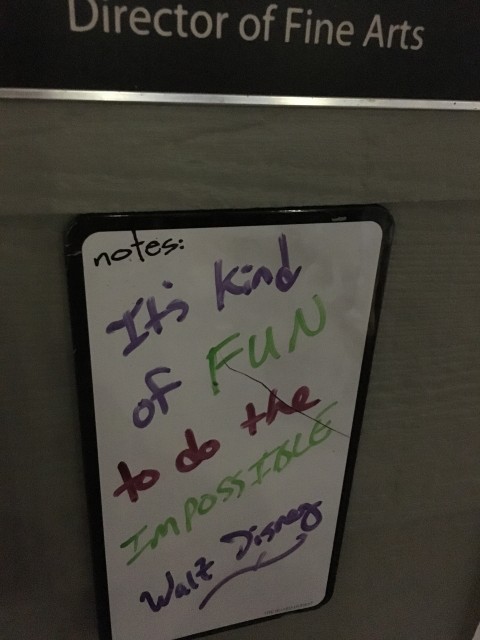 Director of Fine Arts
notes:
It's kind
of FUN
to do the
IMPOSSIBLE
Walt Disney